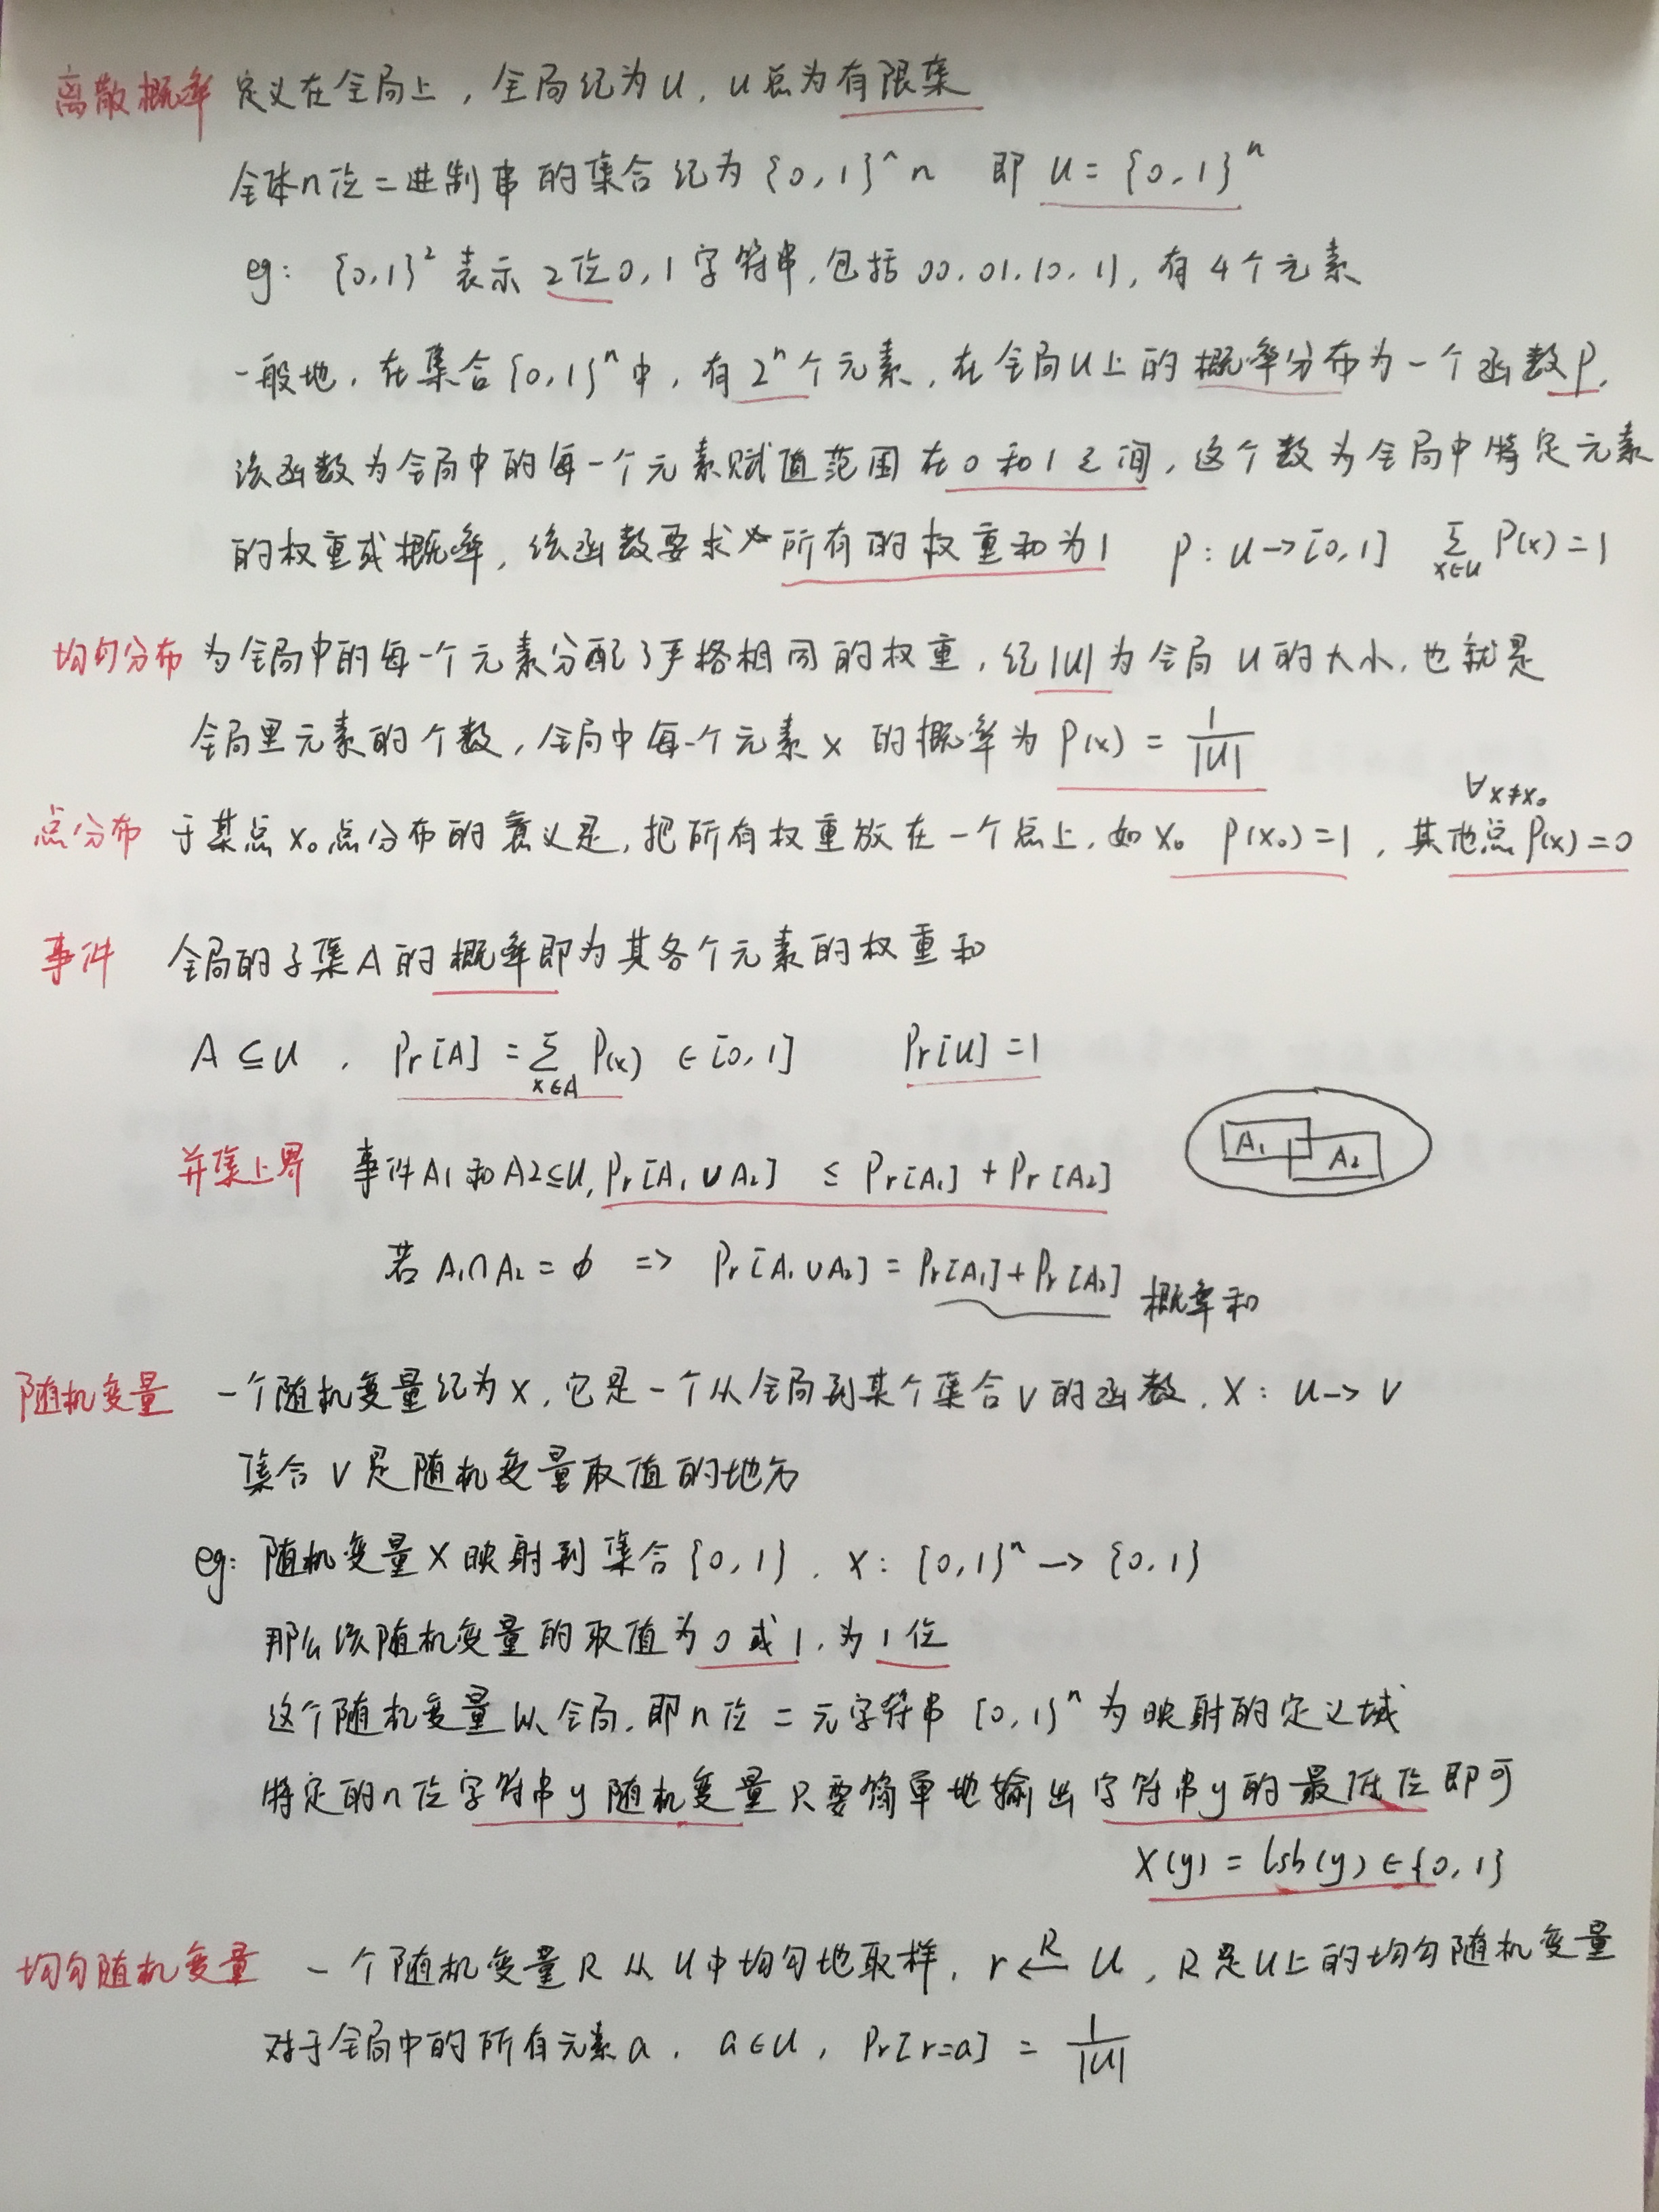 离散概率 定义在全局上，全局纪为U，U总为有限集
全体n位二进制串的集合纪为{0,1}^n 即 U={0,1}ⁿ
eg: {0,1}² 表示2位0,1字符串,包括00.01.10.11,有4个元素
一般地，在集合{0,1}ⁿ中，有2ⁿ个元素，在全局U上的概率分布为一个函数P，
该函数为全局中的每一个元素赋值范围在0和1之间，这个数为全局中特定元素
的权重或概率，该函数要求所有的权重和为1 P:U→[0,1] ∑_{x∈U} P(x)=1
均匀分布 为全局中的每一个元素分配了严格相同的权重，纪|U|为全局U的大小，也就是
全局里元素的个数，全局中每一个元素x的概率为P(x)=1/|U|
∀x≠x₀
点分布 于某点x₀点分布的意义是，把所有权重放在一个点上，如x₀ P(x₀)=1，其他点P(x)=0
事件 全局的子集A的概率即为其各个元素的权重和
A⊆U，Pr[A]=∑_{x∈A} P(x) ∈[0,1] Pr[U]=1
并集上界 事件A1和A2⊆U,Pr[A₁∪A₂] ≤ Pr[A₁]+Pr[A₂]
A₁ A₂
若A₁∩A₂=∅ => Pr[A₁∪A₂]=Pr[A₁]+Pr[A₂] 概率和
随机变量 一个随机变量纪为X，它是一个从全局到某个集合V的函数，X: U→V
集合V是随机变量取值的地方
eg: 随机变量X映射到集合{0,1}，X: {0,1}ⁿ→{0,1}
那么该随机变量的取值为0或1，为1位
这个随机变量以全局，即n位二元字符串{0,1}ⁿ为映射的定义域
特定的n位字符串y随机变量只要简单地输出字符串y的最低位即可
X(y)=lsb(y)∈{0,1}
均匀随机变量 一个随机变量R从U中均匀地取样，r ←ᴿ U，R是U上的均匀随机变量
对于全局中的所有元素a，a∈U，Pr[r=a]=1/|U|